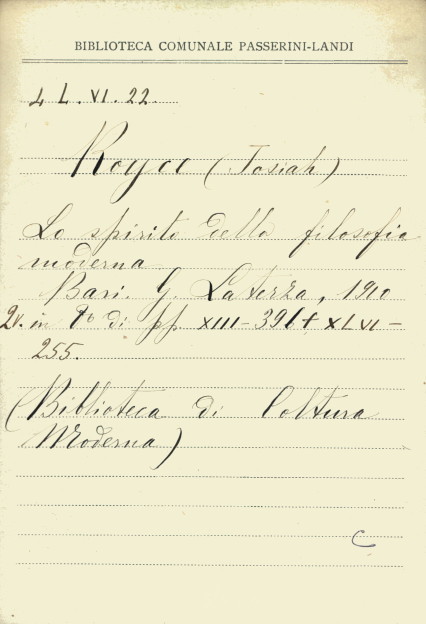 BIBLIOTECA COMUNALE PASSERINI-LANDI
4 L. VI. 22.
Royce (Josiah)
Lo spirito della filosofia
moderna
Bari. G. Laterza, 1910
2 v. in 8º di pp. XIII-396 + XLVI-
255.
(Biblioteca di Coltura
Moderna)
C